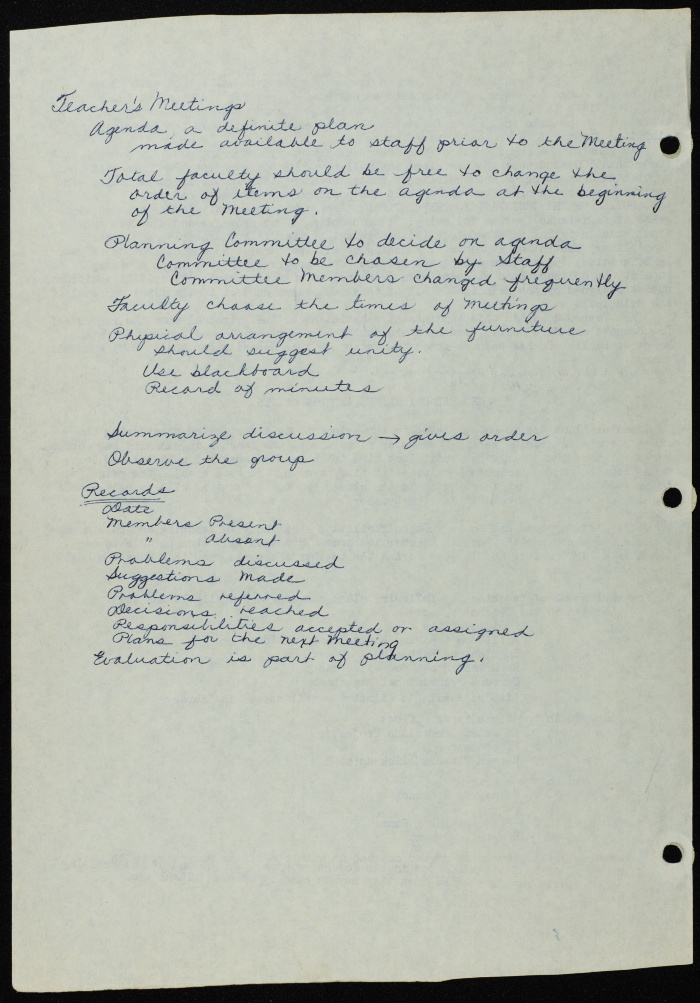 Teacher's Meetings
Agenda, a definite plan
made available to staff prior to the Meeting
Total faculty should be free to change the
order of items on the agenda at the beginning
of the Meeting.
Planning Committee to decide on agenda
Committee to be chosen by Staff
Committee Members changed frequently
Faculty choose the times of Meetings
Physical arrangement of the furniture
should suggest unity.
Use blackboard
Record of minutes
Summarize discussion → gives order
Observe the group
Records
Date
Members Present
" Absent
Problems discussed
Suggestions Made
Problems referred
Decisions reached
Responsibilities accepted or assigned
Plans for the next Meeting
Evaluation is part of planning.